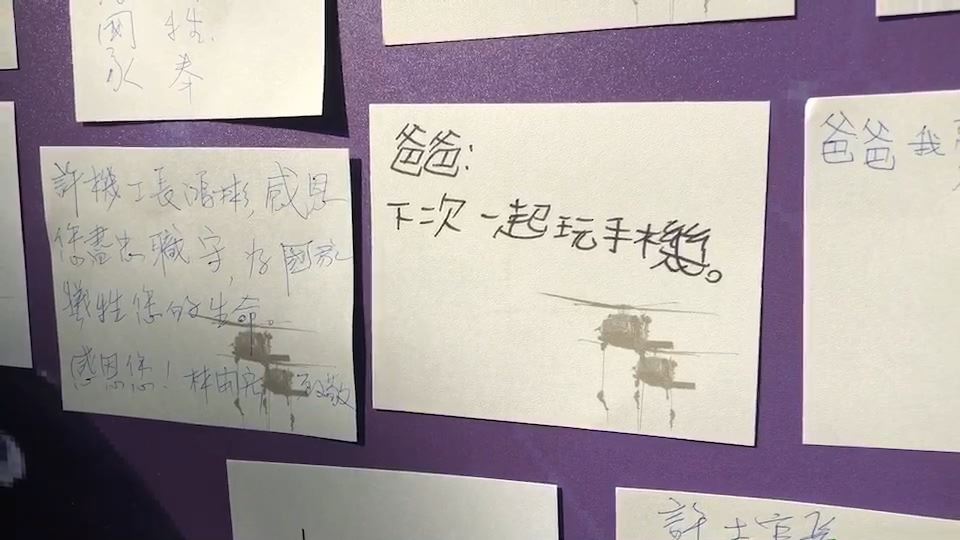 國 牲
家 奉
許機工長鴻彬,感恩
您盡忠職守,為國家
犧牲您的生命。
感恩您!林
敬
爸爸:
下次一起玩手機。
爸爸我
許士官長